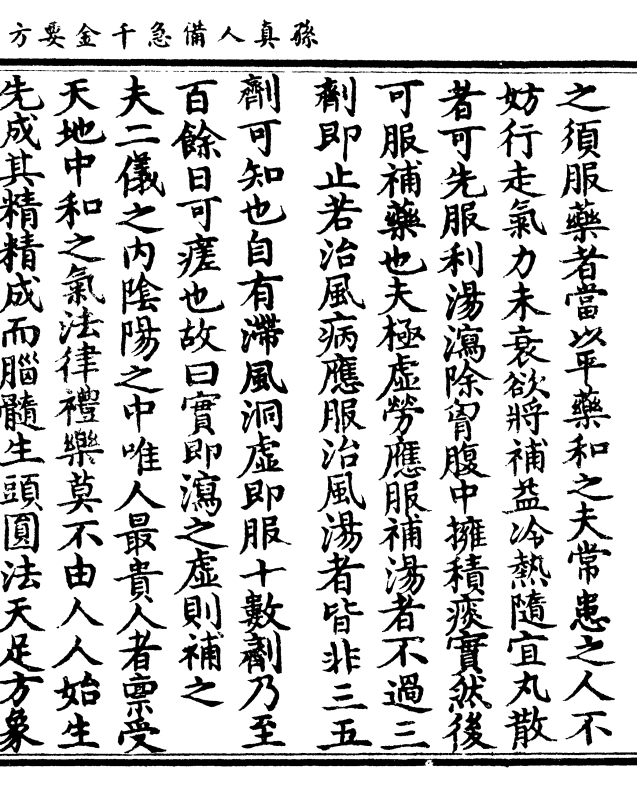 孫真人備急千金要方
之須服藥者當以平藥和之夫常患之人不
妨行走氣力未衰欲將補益冷熱隨宜丸散
者可先服利湯瀉除胷腹中擁積痰實然後
可服補藥也夫極虛勞應服補湯者不過三
劑即止若治風病應服治風湯者皆非三五
劑可知也自有滯風洞虛即服十數劑乃至
百餘日可瘥也故曰實即瀉之虛則補之
夫二儀之内陰陽之中唯人最貴人者禀受
天地中和之氣法律禮樂莫不由人人始生
先成其精精成而腦髓生頭圓法天足方象